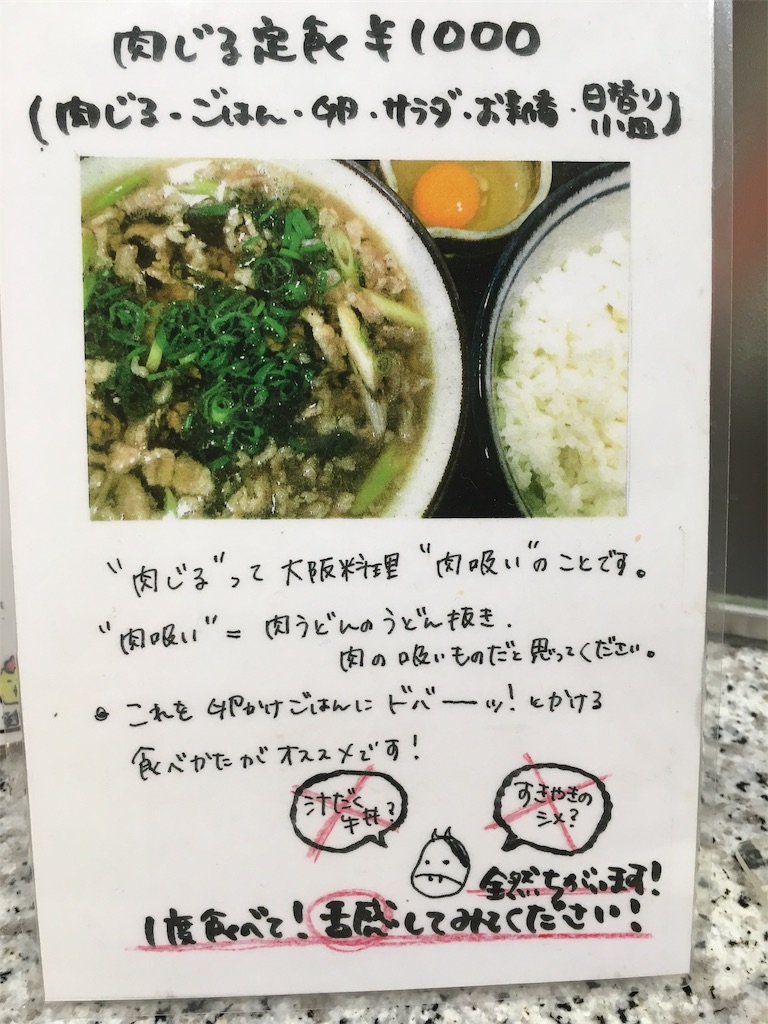 肉じる定食 ¥1000
(肉じる・ごはん・卵・サラダ・お新香・日替り小皿)
"肉じる"って 大阪料理 "肉吸い"のことです。
"肉吸い" = 肉うどんのうどん抜き.
肉の吸いものだと思ってください。
● これを 卵かけごはんに ドバーッ!とかける
食べかたがオススメです!
汁だく
牛丼?
すきやきの
シメ?
全然ちがいます!
1度食べて!舌感してみてください!